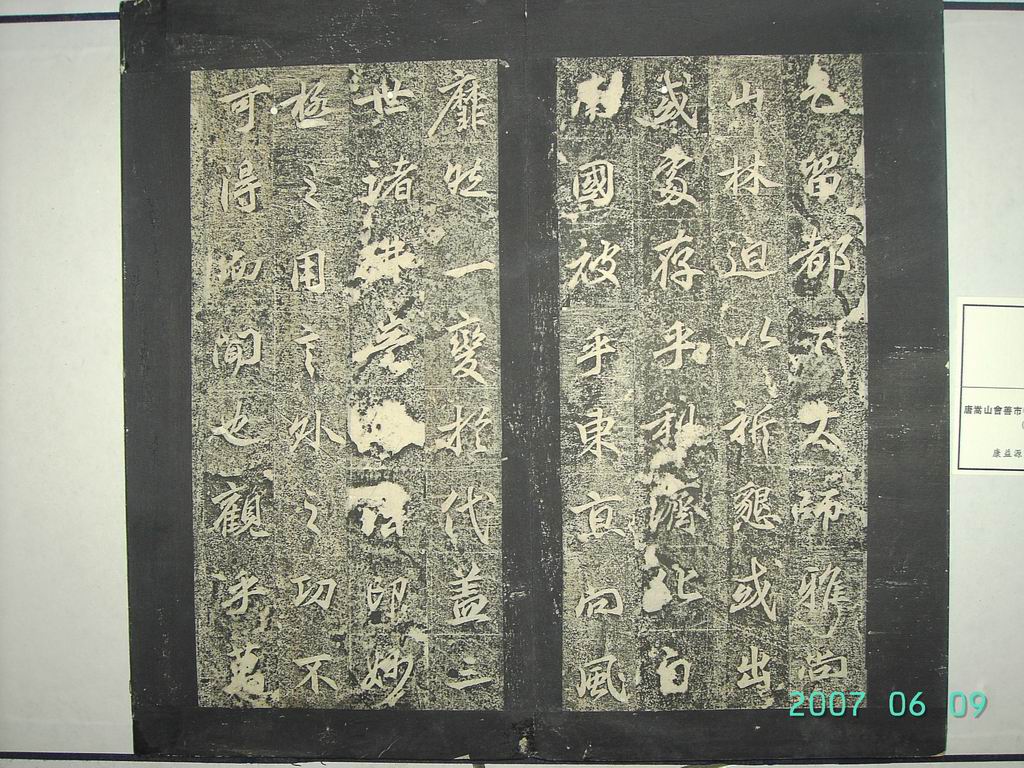 乞留都下大師雅尚
山林迫以祈懇或出
或處存乎利濟化自
南國被乎東京向風
靡然一變於代蓋三
世諸佛印妙
極之用言外之功不
可得而聞也觀乎
唐嵩山會善寺
康益源
2007 06 09